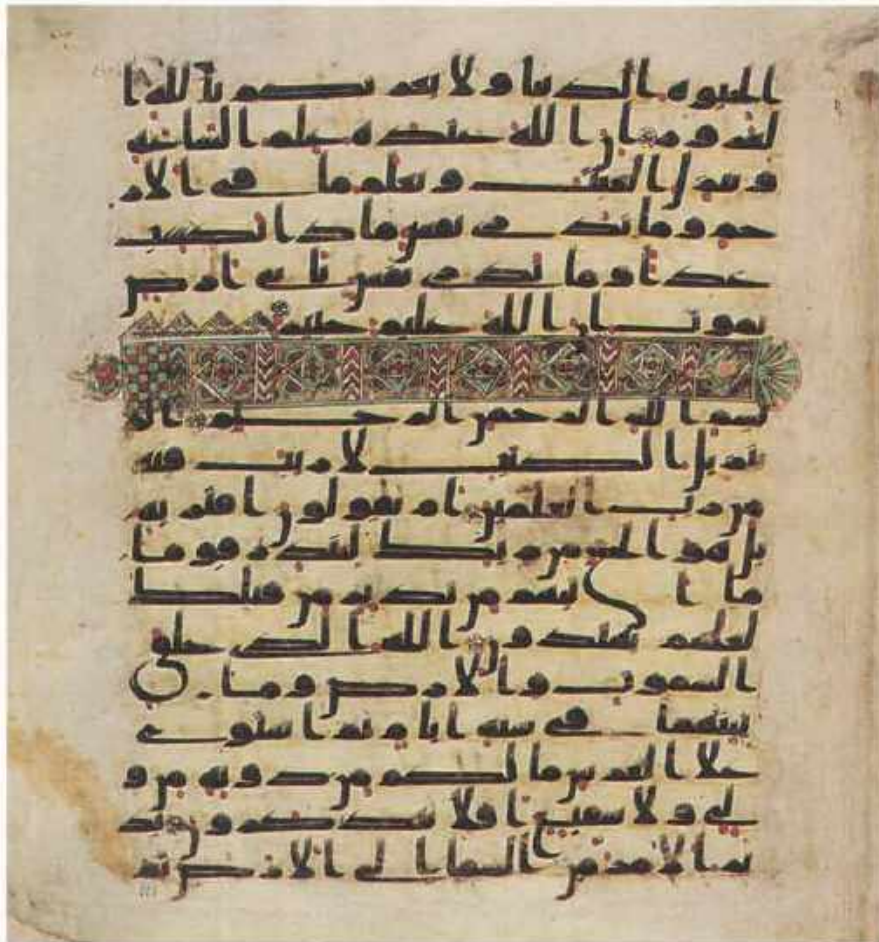 الحيوه الدنيا ولا يغرنكم بالله ا
لغرور ان الله عنده علم الساعه
وينزل الغيث ويعلم ما في الار
حم وما تدري نفس ماذا تكسب
غدا وما تدري نفس باي ارض
تموت ان الله عليم خبير
بسم الله الرحمن الرحيم الم
تنزيل الكتب لا ريب فيه
من رب العلمين ام يقولون افتريه
بل هو الحق من ربك لتنذر قوما
ما اتيهم من نذير من قبلك
لعلهم يهتدون الله الذي خلق
السموت والارض وما
بينهما في سته ايام ثم استوى
على العرش ما لكم من دونه من و
لي ولا شفيع افلا تتذكرون يد
بر الامر من السما الى الارض ثم